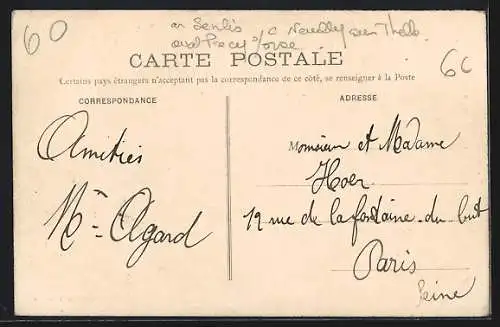 60
ar Senlis c Neuilly sur Thelle
Précy s/oise
6C
CARTE POSTALE
Certains pays étrangers n'acceptant pas la correspondance de ce côté, se renseigner à la Poste
CORRESPONDANCE
Amitiés
Agard
ADRESSE
Monsieur et Madame
Hoer
12 rue de la fontaine-du-but
Paris
Seine